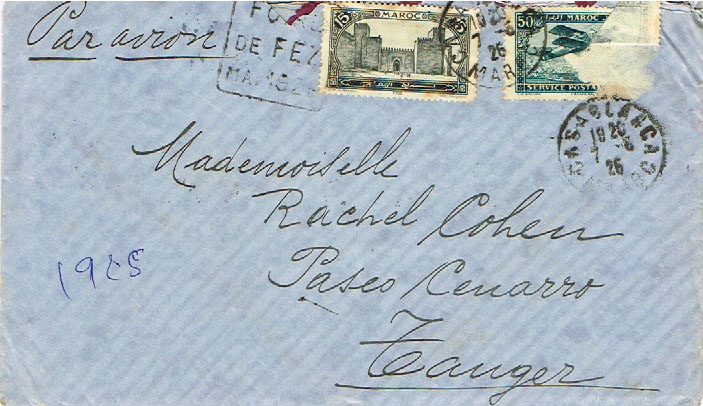 Par avion
DE FEZ
15 MAROC 15
1920
7 -6
26
MAR
50 MAROC
SERVICE POSTA
CASABLANCA
1920
7 -6
26
Mademoiselle
Rachel Cohen
Paseo Cenarro
Tanger
1925